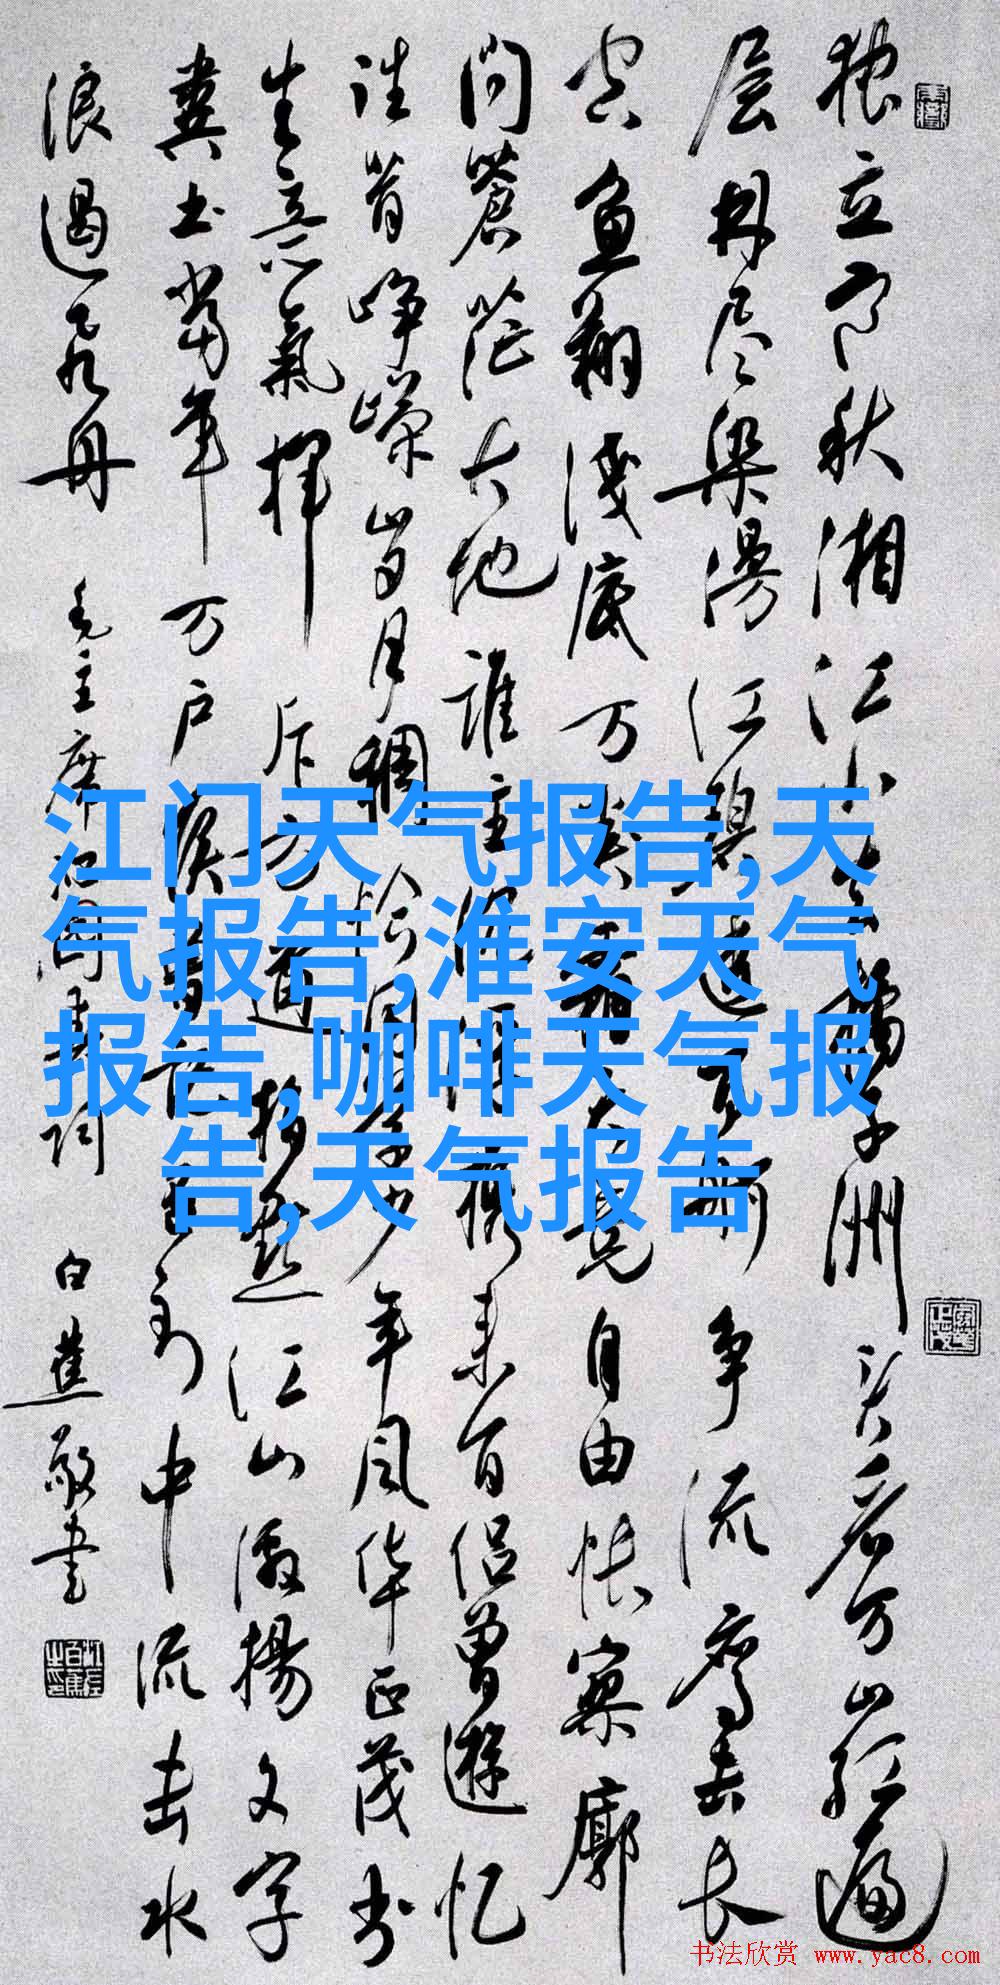 独立寒秋湘江北去橘子洲头看万山红遍
层林尽染漫江碧透百舸争流鹰击长
空鱼翔浅底万类霜天竞自由怅寥廓
问蒼茫大地誰主沉浮携来百侣曾遊忆
往昔峥嵘岁月稠恰同学少年风华正茂书
生意氣挥斥方遒指点江山激揚文字
粪土当年万户侯曾记否到中流击水
浪遏飞舟 毛主席沁园春词 白蕉敬书
江门天气报告,天
气报告,淮安天气
报告,咖啡天气报
告,天气报告
书法欣赏 www.yac8.com